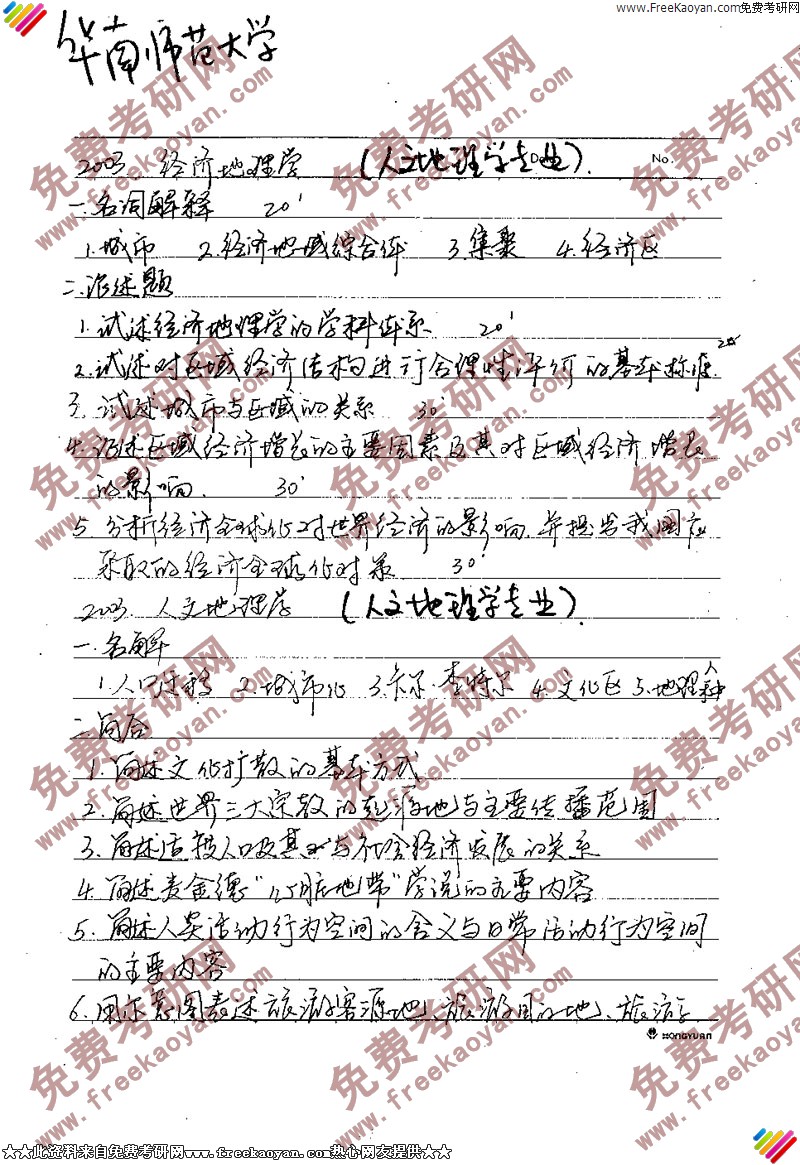 www.FreeKaoyan.com免费考研网
华南师范大学
No.
2003. 经济地理学 (人文地理学专业).
一.名词解释 20'
1.城市 2.经济地域综合体 3.集聚 4.经济区
二.论述题
1.试述经济地理学的学科体系 20'
2.试述对区域经济结构进行合理性评价的基本标准.
3.试述城市与区域的关系 30'
4.论述区域经济增长的主要因素及其对区域经济增长
的影响. 30'
5.分析经济全球化对世界经济的影响.并提出我国应
采取的经济全球化对策 30'
2003. 人文地理学 (人文地理学专业).
一.名解
1.人口迁移 2.城市化 3.卡尔·李特尔 4.文化区 5.地理人种
二.简答
1.简述文化扩散的基本方式
2.简述世界三大宗教的起源地与主要传播范围
3.简述适度人口及其与社会经济发展的关系
4.简述麦金德“心脏地带”学说的主要内容
5.简述人类活动行为空间的含义与日常活动行为空间
的主要内容
6.用示意图表述旅游客源地、旅游目的地、旅游
HONGYUAN
★★此资料来自免费考研网www.freekaoyan.com热心网友提供★★
免费考研网
www.freekaoyan.com